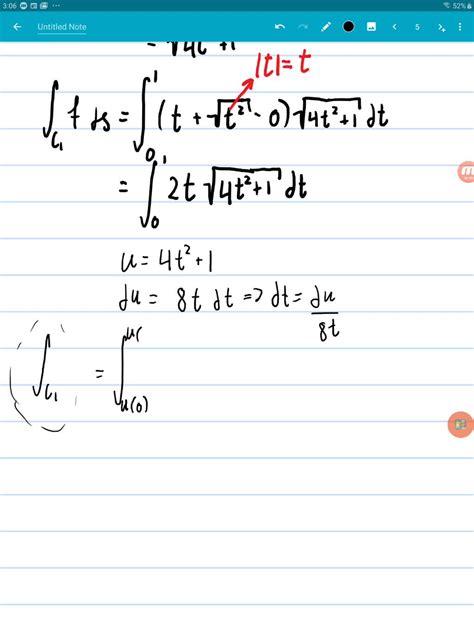 3:06 52%
Untitled Note 5
= √4t²+1
|t|=t
∫_C₁ f ds = ∫₀¹ (t + √t² - 0) √4t²+1 dt
= ∫₀¹ 2t √4t²+1 dt
u = 4t²+1
du = 8t dt => dt = du/8t
∫_C₁ = ∫_u(0)^u(